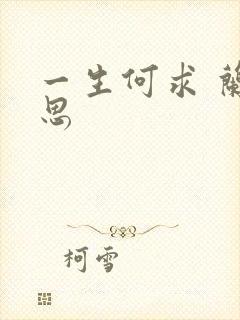 一生何求 蘭
思
柯雪